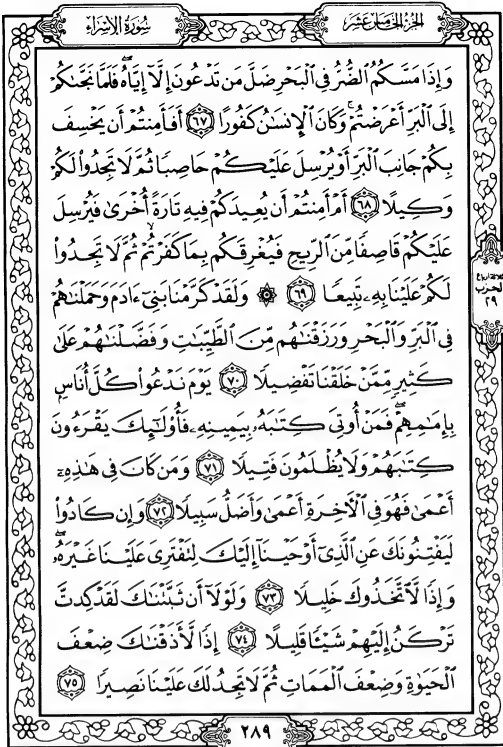 الجزء الخامس عشر
سورة الإسراء
وَإِذَا مَسَّكُمُ ٱلضُّرُّ فِي ٱلْبَحْرِ ضَلَّ مَن تَدْعُونَ إِلَّآ إِيَّاهُ ۖ فَلَمَّا نَجَّىٰكُمْ
إِلَى ٱلْبَرِّ أَعْرَضْتُمْ ۚ وَكَانَ ٱلْإِنسَٰنُ كَفُورًا ٦٧ أَفَأَمِنتُمْ أَن يَخْسِفَ
بِكُمْ جَانِبَ ٱلْبَرِّ أَوْ يُرْسِلَ عَلَيْكُمْ حَاصِبًا ثُمَّ لَا تَجِدُوا۟ لَكُمْ
وَكِيلًا ٦٨ أَمْ أَمِنتُمْ أَن يُعِيدَكُمْ فِيهِ تَارَةً أُخْرَىٰ فَيُرْسِلَ
عَلَيْكُمْ قَاصِفًا مِّنَ ٱلرِّيحِ فَيُغْرِقَكُم بِمَا كَفَرْتُمْ ۙ ثُمَّ لَا تَجِدُوا۟
لَكُمْ عَلَيْنَا بِهِۦ تَبِيعًا ٦٩ ۞ وَلَقَدْ كَرَّمْنَا بَنِىٓ ءَادَمَ وَحَمَلْنَٰهُمْ
فِي ٱلْبَرِّ وَٱلْبَحْرِ وَرَزَقْنَٰهُم مِّنَ ٱلطَّيِّبَٰتِ وَفَضَّلْنَٰهُمْ عَلَىٰ
كَثِيرٍ مِّمَّنْ خَلَقْنَا تَفْضِيلًا ٧٠ يَوْمَ نَدْعُوا۟ كُلَّ أُنَاسٍۭ
بِإِمَٰمِهِمْ ۖ فَمَنْ أُوتِىَ كِتَٰبَهُۥ بِيَمِينِهِۦ فَأُو۟لَٰٓئِكَ يَقْرَءُونَ
كِتَٰبَهُمْ وَلَا يُظْلَمُونَ فَتِيلًا ٧١ وَمَن كَانَ فِى هَٰذِهِۦٓ
أَعْمَىٰ فَهُوَ فِي ٱلْءَاخِرَةِ أَعْمَىٰ وَأَضَلُّ سَبِيلًا ٧٢ وَإِن كَادُوا۟
لَيَفْتِنُونَكَ عَنِ ٱلَّذِىٓ أَوْحَيْنَآ إِلَيْكَ لِتَفْتَرِىَ عَلَيْنَا غَيْرَهُۥ ۖ
وَإِذًا لَّٱتَّخَذُوكَ خَلِيلًا ٧٣ وَلَوْلَآ أَن ثَبَّتْنَٰكَ لَقَدْ كِدتَّ
تَرْكَنُ إِلَيْهِمْ شَيْـًٔا قَلِيلًا ٧٤ إِذًا لَّأَذَقْنَٰكَ ضِعْفَ
ٱلْحَيَوٰةِ وَضِعْفَ ٱلْمَمَاتِ ثُمَّ لَا تَجِدُ لَكَ عَلَيْنَا نَصِيرًا ٧٥
ثلاثة أرباع
الحزب
٢٩
٢٨٩